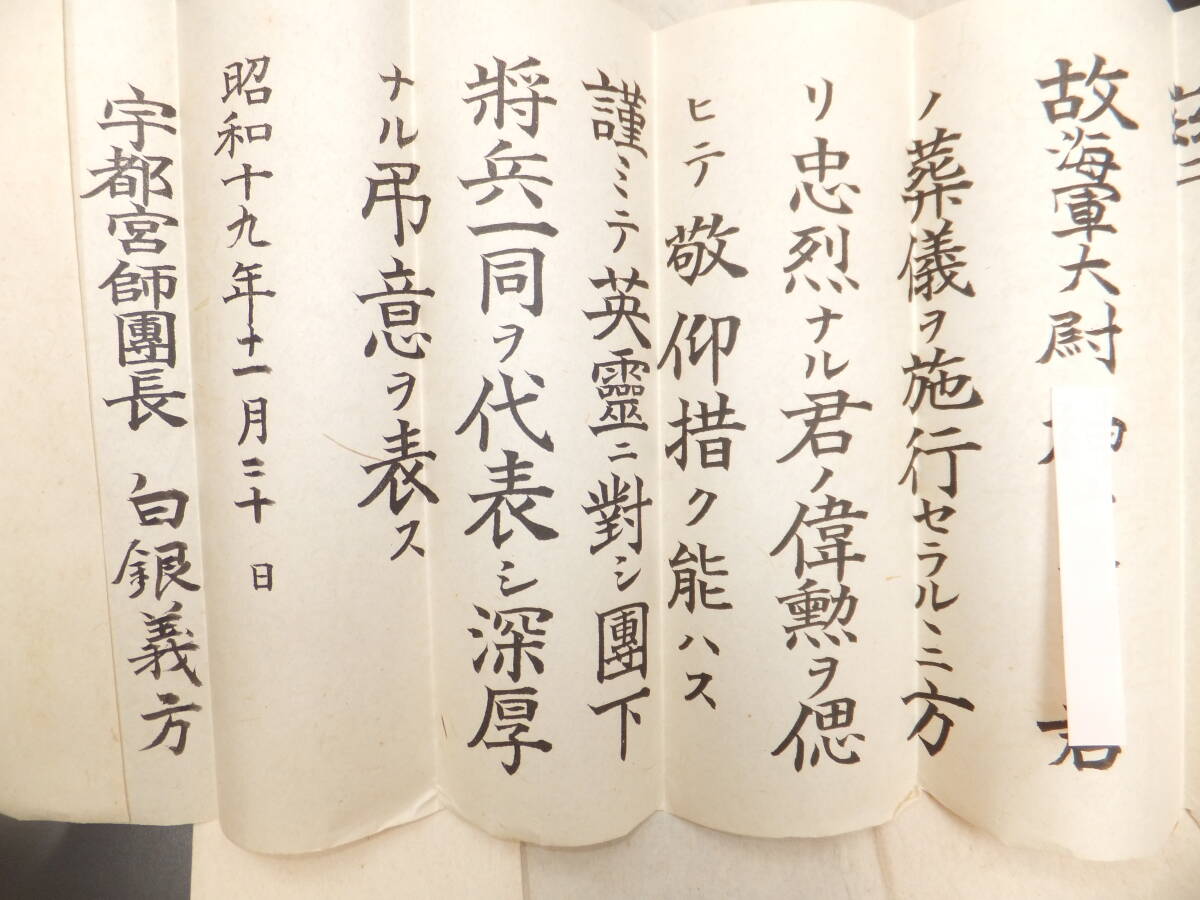 故海軍大尉 君
ノ葬儀ヲ施行セラルヽニ方
リ忠烈ナル君ノ偉勲ヲ偲
ヒテ敬仰措ク能ハス
謹ミテ英靈ニ對シ團下
將兵一同ヲ代表シ深厚
ナル弔意ヲ表ス
昭和十九年十一月二十日
宇都宮師團長 白銀義方